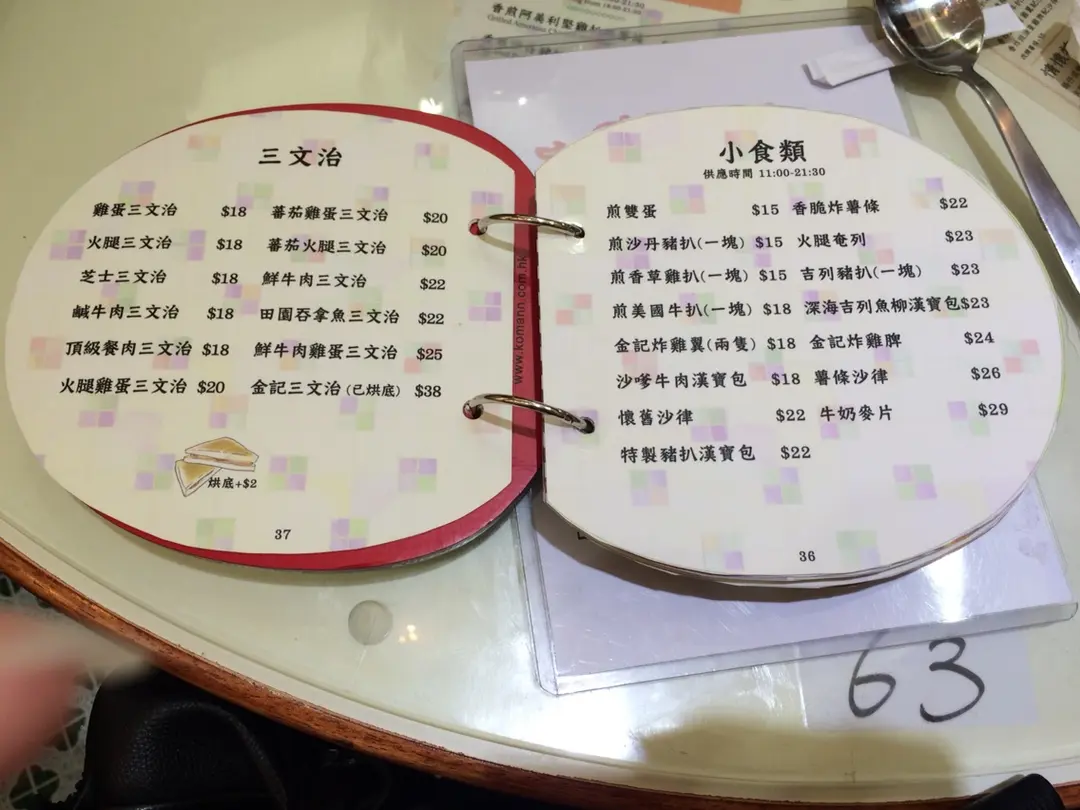 香煎阿美利堅雞
三文治
雞蛋三文治 $18 蕃茄雞蛋三文治 $20
火腿三文治 $18 蕃茄火腿三文治 $20
芝士三文治 $18 鮮牛肉三文治 $22
鹹牛肉三文治 $18 田園吞拿魚三文治 $22
頂級餐肉三文治 $18 鮮牛肉雞蛋三文治 $25
火腿雞蛋三文治 $20 金記三文治(已烘底) $38
烘底+$2
37
www.komann.com.hk
小食類
供應時間 11:00-21:30
煎雙蛋 $15 香脆炸薯條 $22
煎沙丹豬扒(一塊) $15 火腿奄列 $23
煎香草雞扒(一塊) $15 吉列豬扒(一塊) $23
煎美國牛扒(一塊) $18 深海吉列魚柳漢寶包$23
金記炸雞翼(兩隻) $18 金記炸雞髀 $24
沙嗲牛肉漢寶包 $18 薯條沙律 $26
懷舊沙律 $22 牛奶麥片 $29
特製豬扒漢寶包 $22
36
63